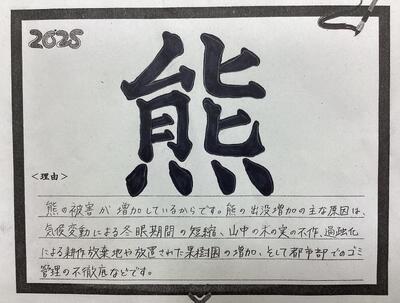 2025
熊
<理由>
熊の被害が増加しているからです。熊の出没増加の主な原因は、
気候変動による冬眠期間の短縮、山中の木の実の不作、過疎化
による耕作放棄地や放置された果樹園の増加、そして都市部でのゴミ
管理の不徹底などです。